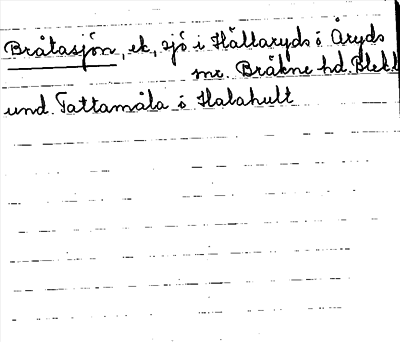 Bråtasjön, ek, sjö i Hällaryds ö Åryds
snr. Bräkne hd. Blek.l
und. Tattamåla ö Halahult